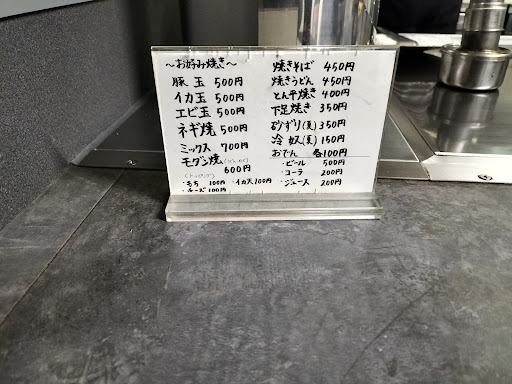 ～お好み焼き～
豚玉 500円
イカ玉 500円
エビ玉 500円
ネギ焼 500円
ミックス 700円
モダン焼
600円
・もち 100円 ・イカ天 100円
・チーズ 100円
焼きそば 450円
焼きうどん 450円
とん平焼き 400円
下足焼き 350円
砂ずり(夏) 350円
冷奴(夏) 150円
おでん 各100円
・ビール 500円
・コーラ 200円
・ジュース 200円